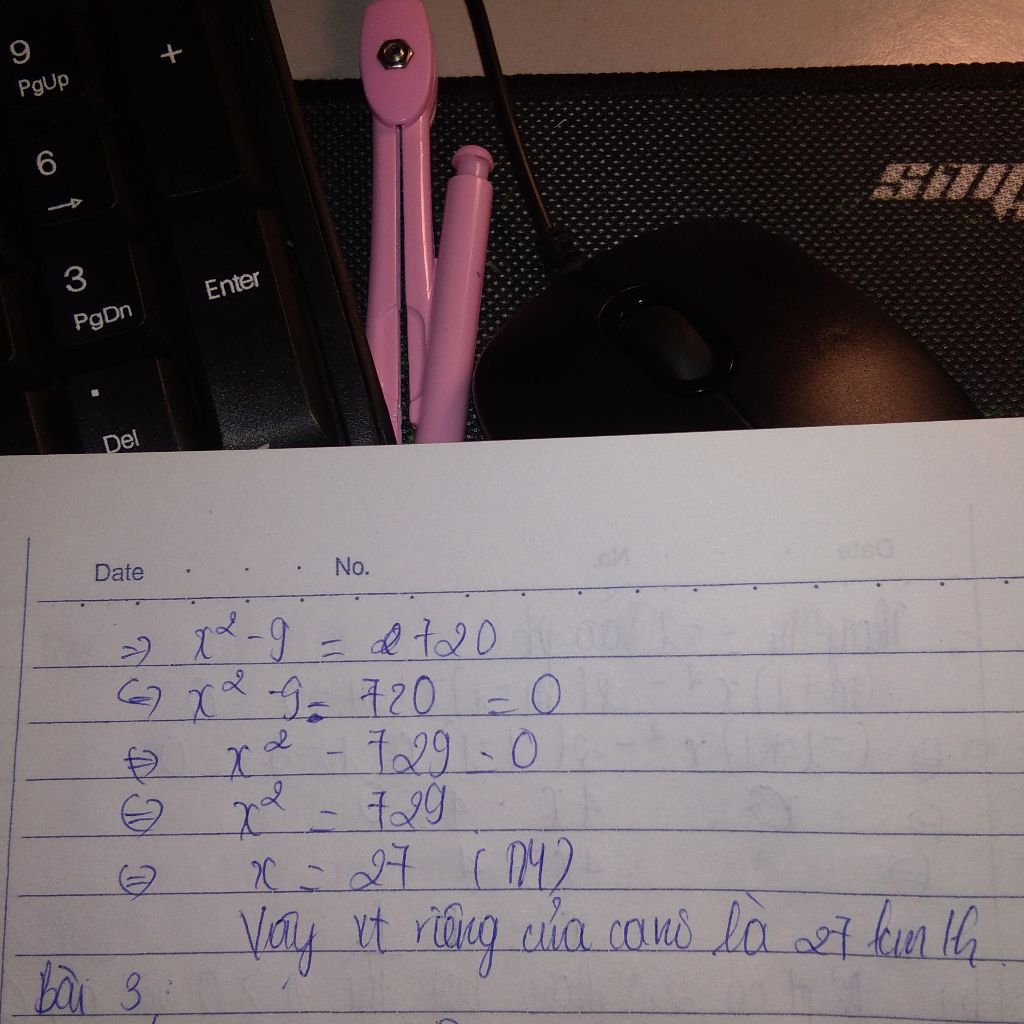 9
PgUp
+
6
→
3
PgDn
Enter
.
Del
Date . . . No.
=> x² - 9 = 720
<=> x² - 9 - 720 = 0
<=> x² - 729 = 0
<=> x² = 729
<=> x = 27 (TM)
Vậy vt riêng của canô là 27 km/h
Bài 3: